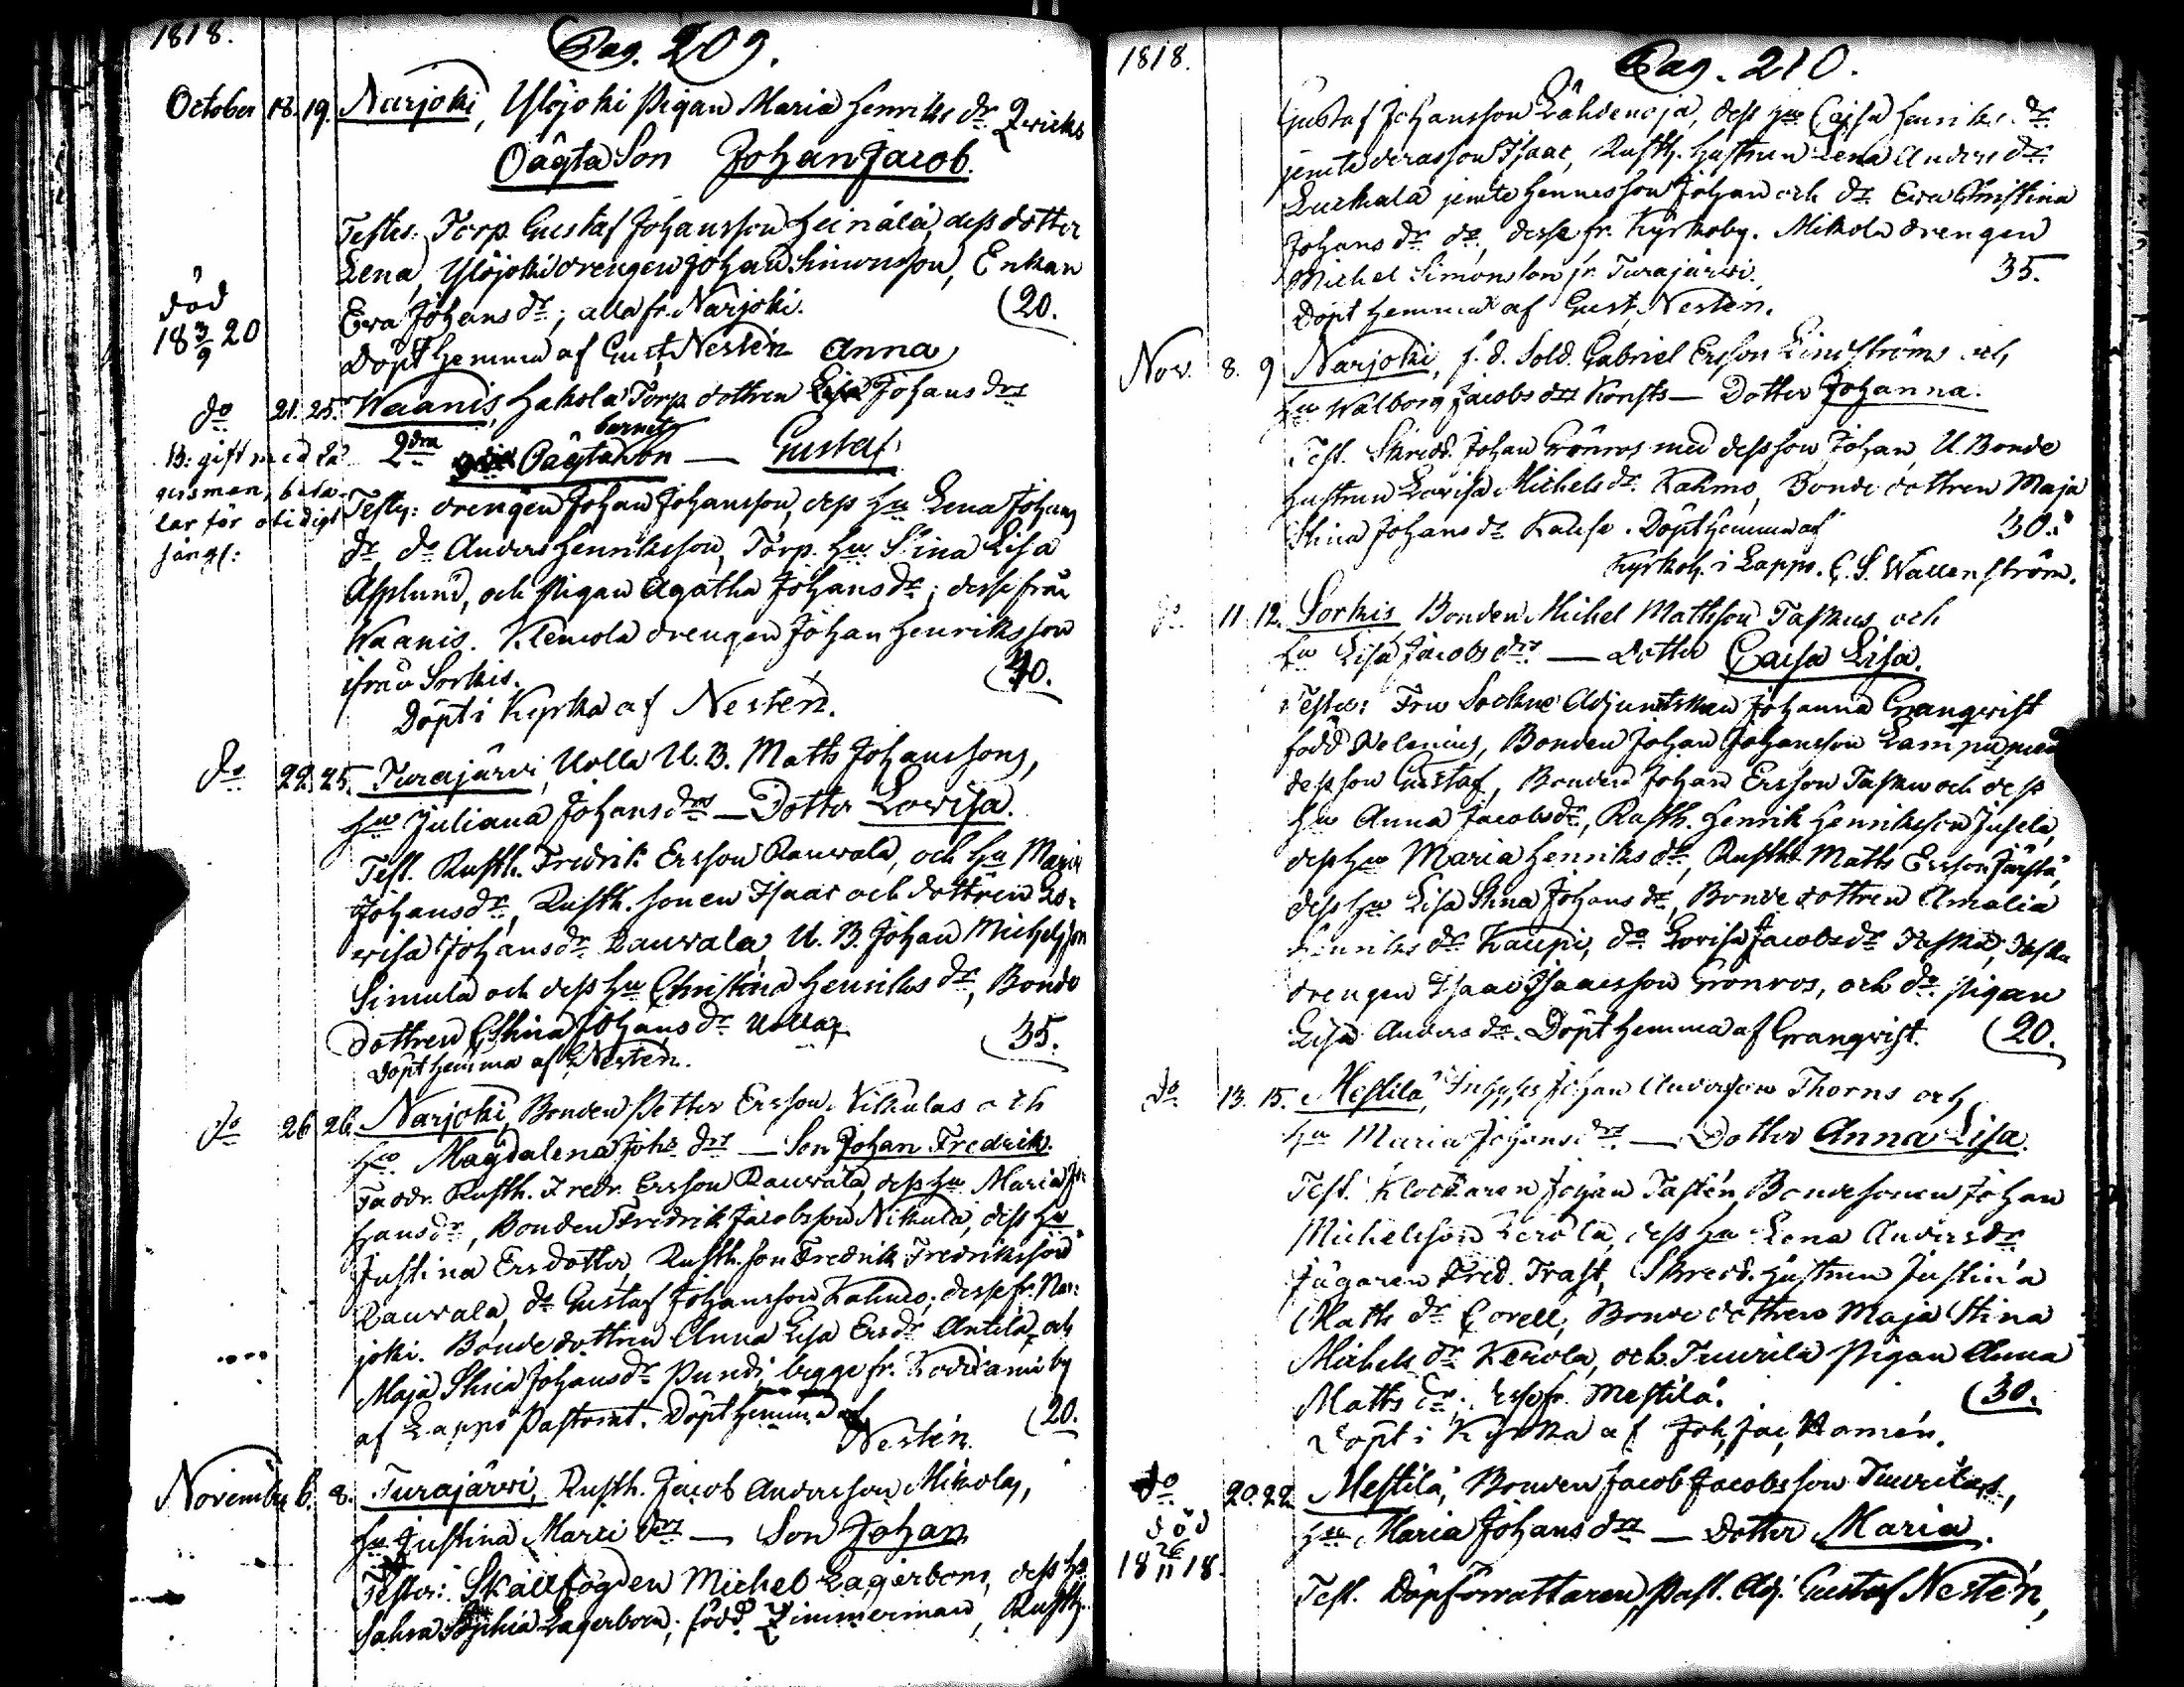 1818.
Pag. 209.
October 18. 19. Narjoki, Ylöjoki Pigan Maria Henriks dr. Qvicks
Oägta Son Johan Jacob.
Testes: Torp. Gustaf Johansson Heinälä, dess dotter
Lena, Ylöjoki drengen Johan Simonsson, Enkan
Eva Johans dr; alla fr. Narjoki. (20.
död
18 3/9 20
Döpt hemma af Gust. Nestén
Anna
do 21. 25. Waanis, Hakola Torp. dottren Lisa Johans drs
barnet
2dra Oägta — Gustaf
Testes: drengen Johan Johansson, dess Hu Lena Johans
dr do Anders Henriksson, Torp. Hu Stina Lisa
Asplund, och Pigan Agatha Johans dr; desse från
Waanis. Klemola drengen Johan Henriksson
ifrån Sorkis. (40.
Döpt i Kyrka af Nestén.
do 22. 25. Turajärvi, Uolla U. B. Matts Johanssons,
Hu Juliana Johans drs — Dotter Lovisa.
Test. Rusth. Fredrik Ersson Rauvala, och Hu Maria
Johans dr, Rusth. sonen Isaac och dottren Lo-
visa Johans dr Rauvala, U. B. Johan Michelsson
Simula och dess Hu Christina Henriks dr, Bonde
dottren Stina Johans dr Uolla (35.
Döpt hemma af Nestén.
do 26 26. Narjoki, Bonden Petter Ersson Nikulas och
Hu Magdalena Johs drs — Son Johan Fredrik.
Faddr. Rusth. Fredr. Ersson Rauvala, dess Hu Maria Jo-
hans dr, Bonden Fredrik Jacobsson Nikula, dess Hu
Justina Ersdotter, Rusth. son Fredrik Fredriksson
Rauvala, do Gustaf Johansson Kahmo; desse fr. Nar-
joki. Bonde dottren Anna Lisa Ers dr Antila, och
Maja Stina Johans dr Pundi, begge fr. by
af Lappo Pastorat. Döpt hemma af (20.
Nestén.
November 6. 8. Turajärvi, Rusth. Jacob Andersson Mikolas,
Hu Justina Marci drs — Son Johan
Testes: Skallfogden Michel Lagerbom, dess Hu
Sahra Sophia Lagerbom, född Zimmerman, Rusth.
1818.
Pag. 210.
Gustaf Johansson Lähdenoja, dess Hu Cajsa Henriks dr
jemte deras son Isaac, Rusth. hustrun Lena Anders dr
jemte hennes son Johan och dr Eva Christina
Johans dr do, desse fr. Kyrkoby. Mikola drengen
Michel Simonsson fr. Turajärvi. 35.
Döpt hemma af Gust. Nestén.
Nov. 8. 9 Narjoki, f. d. Sold. Gabriel Ersson Lindström och
Hu Walborg Jacobs drs Konsts — Dotter Johanna.
Test. Skredd. Johan Grönros med dess son Johan, U. Bonde
hustrun Lovisa Michels dr. Kahmo, Bonde dottren Maja
Stina Johans dr Döpt hemma af 30.
Kyrkoh. i Lappo. C. S. Wallenström.
do 11. 12. Sorkis Bonden Michel Mattsson Taskus och
Hu Lisa Jacobs drs — dotter Caisa Lisa.
Testes: Fru Sockne Adjunctskan Johanna Granqvist
född Welenius, Bonden Johan Johansson Lamppu med
dess son Gustaf, Bonden Johan Ersson Tasku och dess
Hu Anna Jacobs dr, Rusth. Henrik Henriksson Jusela,
dess Hu Maria Henriks dr, Rusth. Matts Ersson
dess Hu Lisa Stina Johans dr, Bonde dottren Amalia
Henriks dr Kaupi, do Lovisa Jacobs dr Tasku, Tasku
drengen Isaac Isaacsson Grönros, och do pigan
Lisa Anders dr. Döpt hemma af Granqvist. (20.
do 13. 15. Mestilä, Inhyses Johan Andersson Thorns och
Hu Maria Johans drs — Dotter Anna Lisa.
Test. Klockaren Johan Tastén, Bondesonen Johan
Michelsson Kerola, dess Hu Lena Anders dr
Jägaren Fred. Trast, Skredd. hustrun Justina
Matts dr Corell, Bonde dottren Maja Stina
Michels dr Kerola, och Tuurila pigan Anna
Matts dr; desse fr. Mestilä. (30.
Döpt i Kyrka af Joh. Jac. Hamén.
do 20. 22 Mestilä, Bonden Jacob Jacobsson Tuurilas,
Hu Maria Johans drs — Dotter Maria.
död
18 26/11 18.
Test. Döpförrattaren, Past. Adj. Gustaf Nestén,